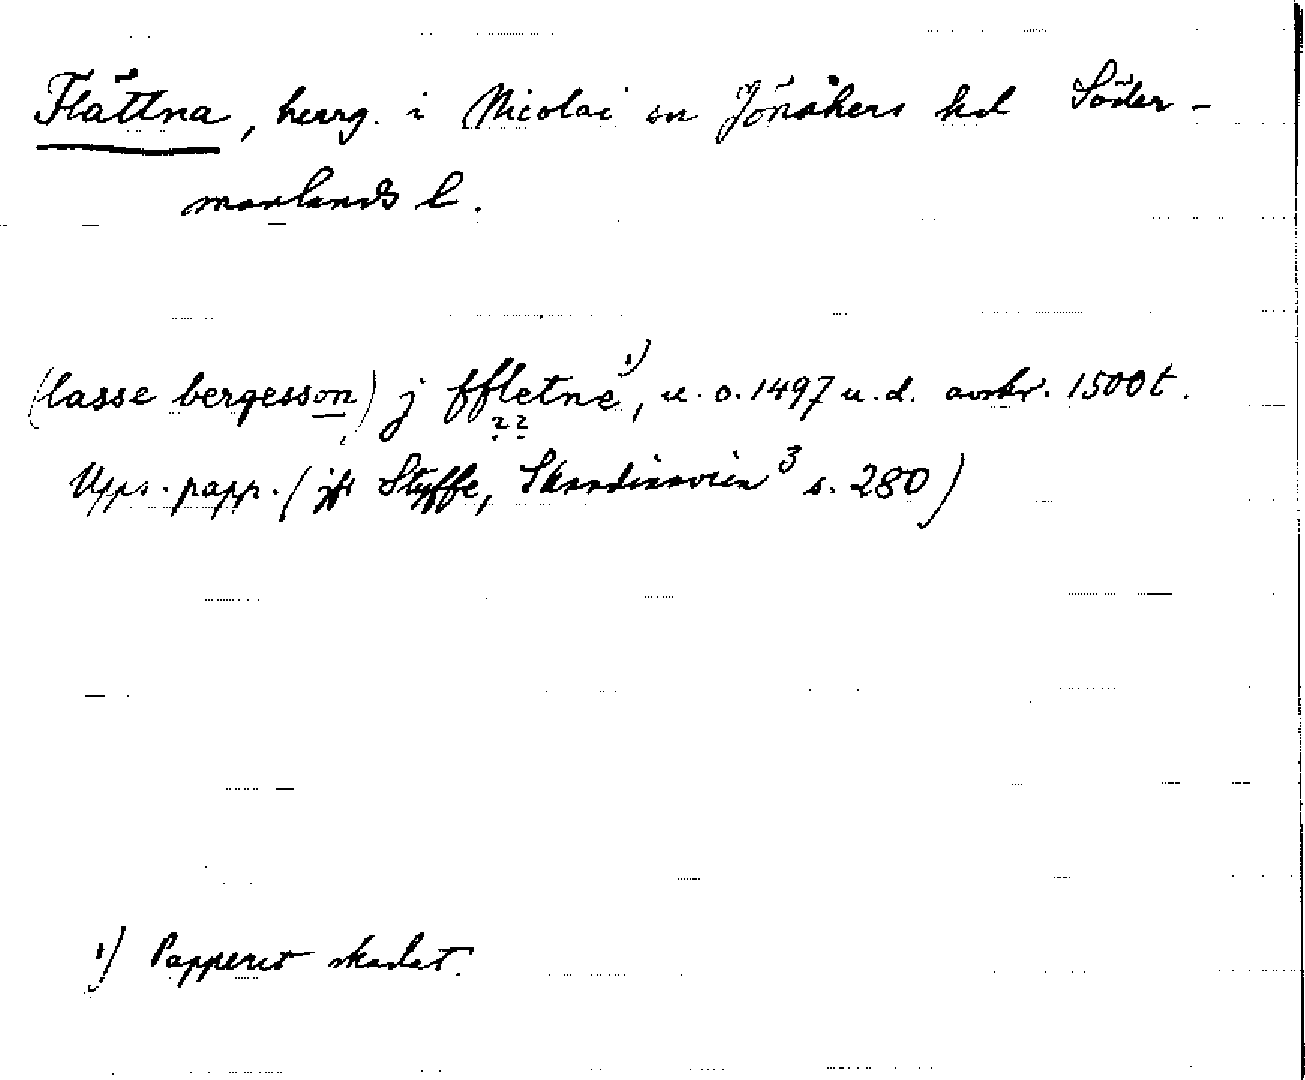 Flättna, herrg. i Nicolai sn Jönåkers hd Söder-
manlands l.
(lasse bergesson) j ffletne¹⁾, u. o. 1497 u. d. avskr. 1500t.
??
Upps. papp. (jfr Styffe, Skandinavien³ s. 280)
¹⁾ Papperet skadat.